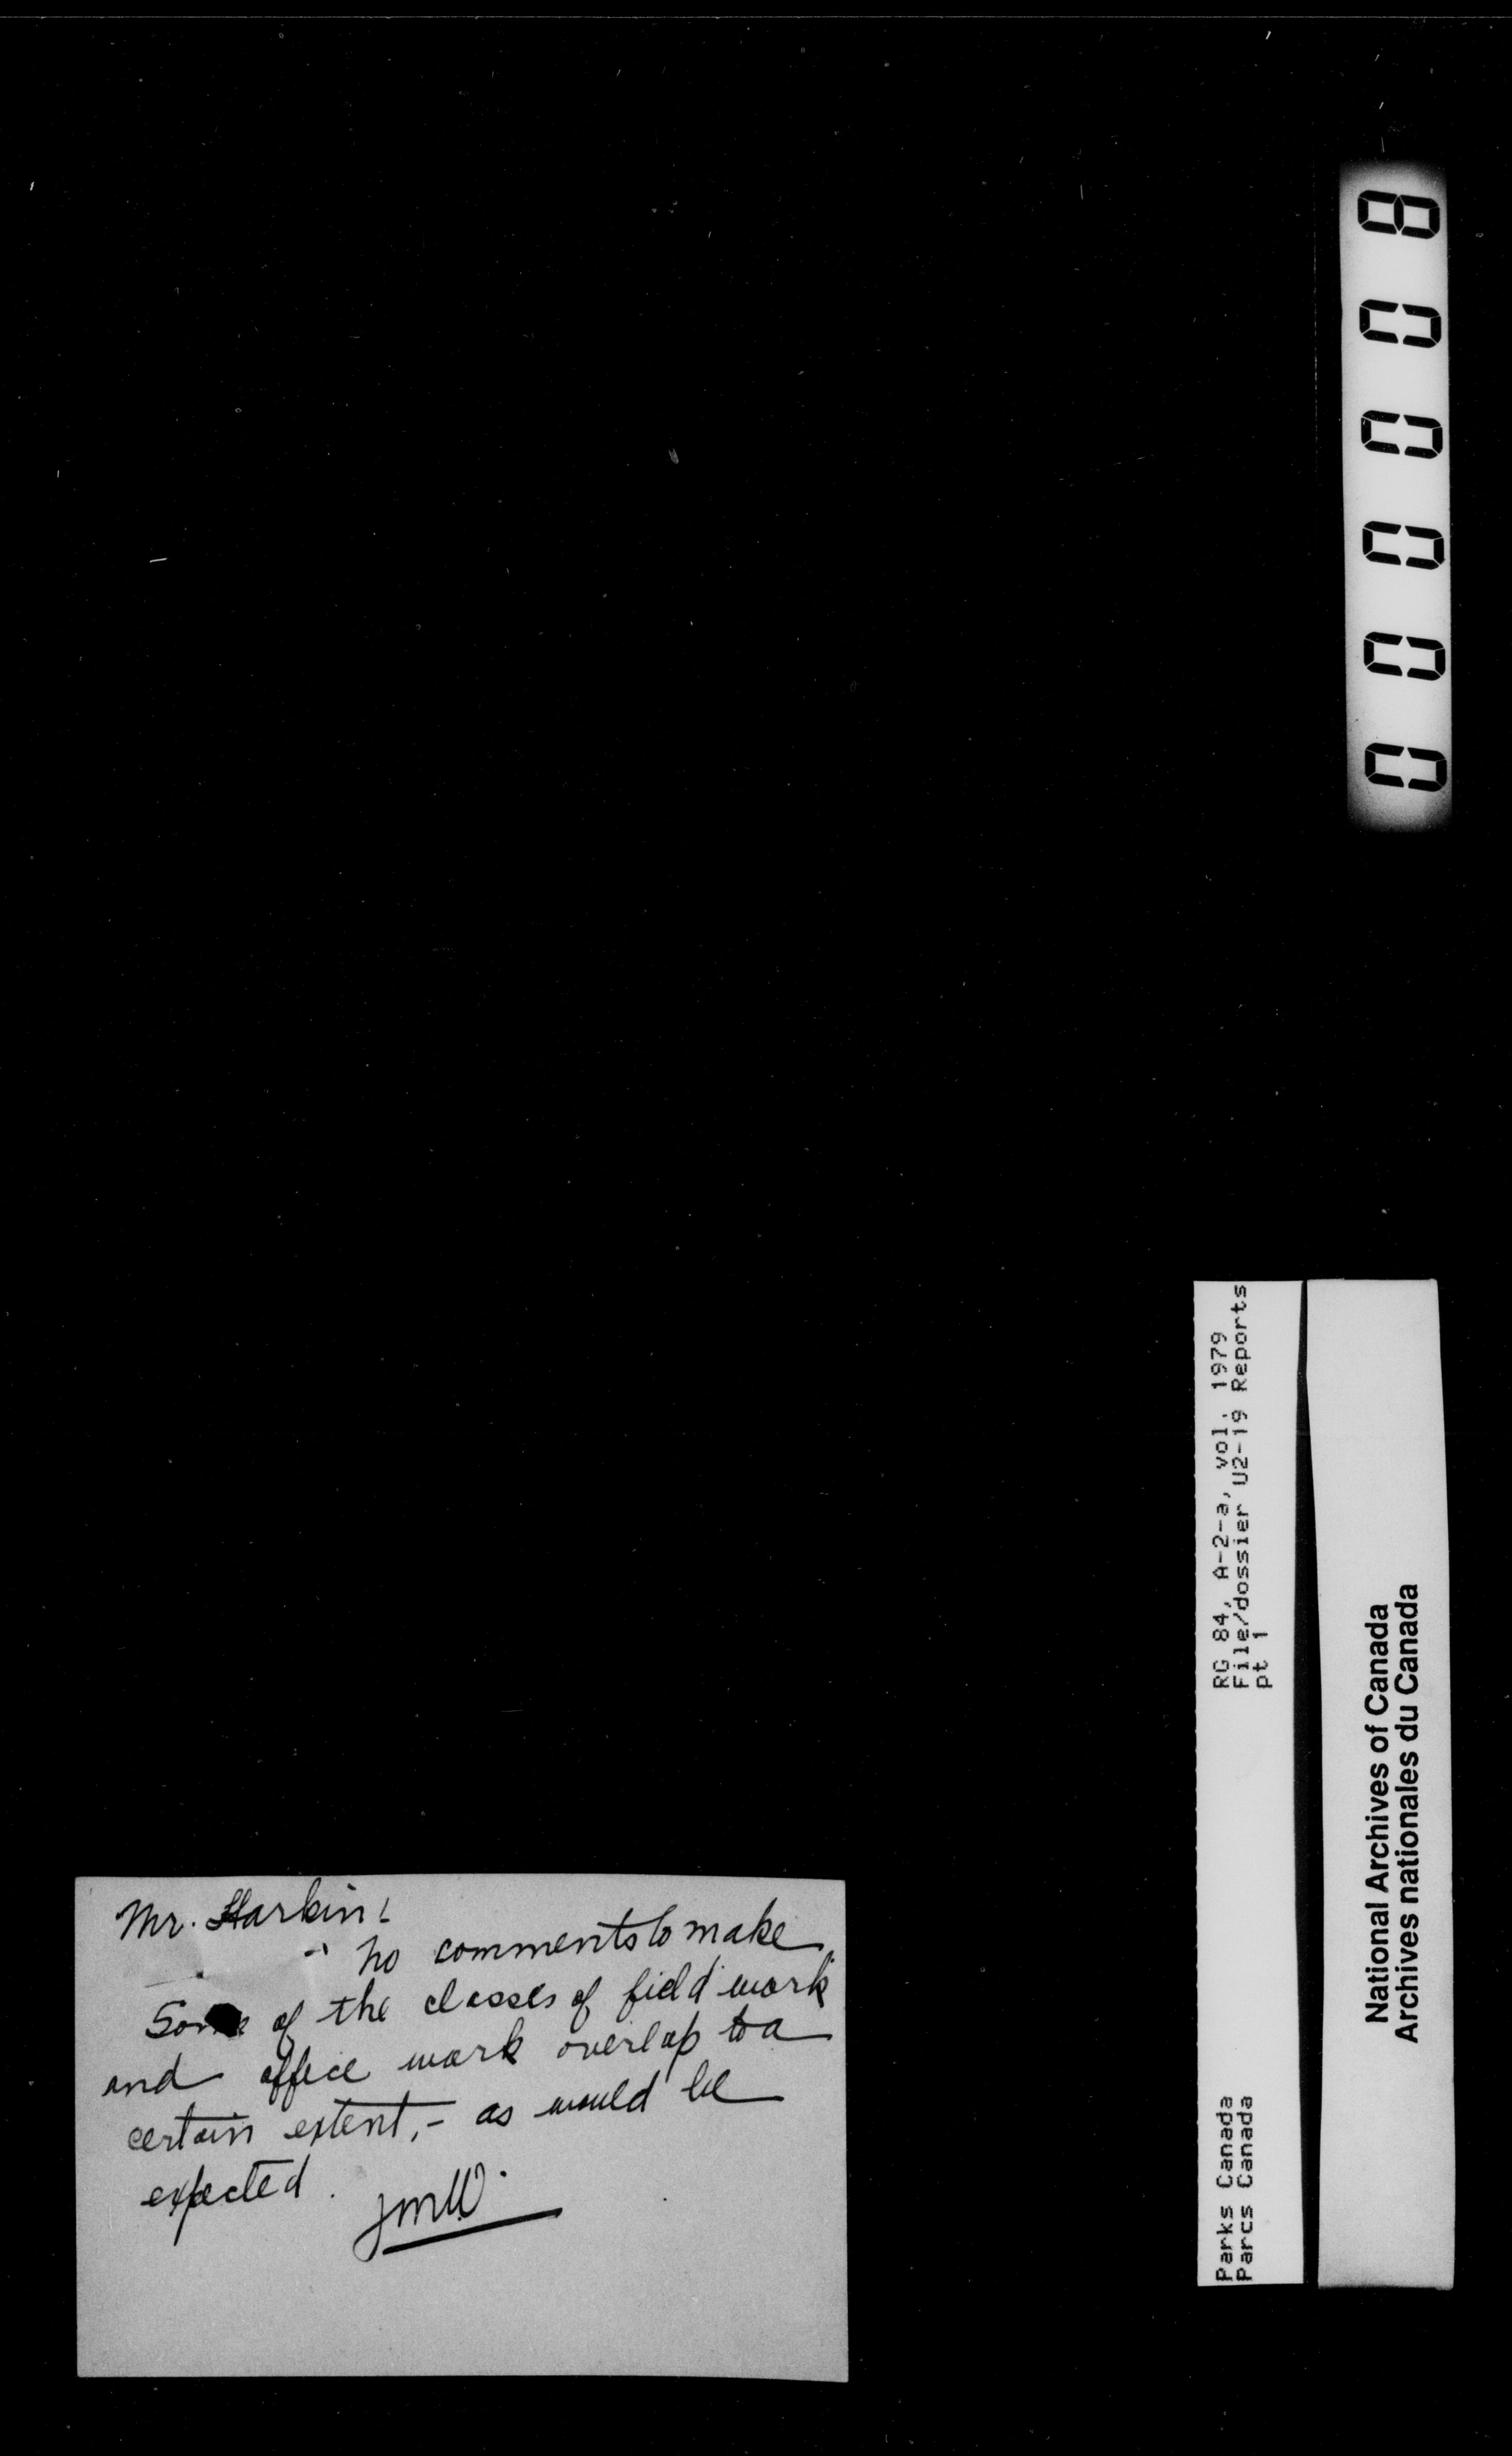 000008
RG 84, A-2-a, vol. 1979
File/dossier U2-19 Reports
pt 1
Parks Canada
Parcs Canada
National Archives of Canada
Archives nationales du Canada
Mr. Harkin:
- no comments to make.
Some of the classes of field work
and office work overlap to a
certain extent, - as would be
expected.
JMW.